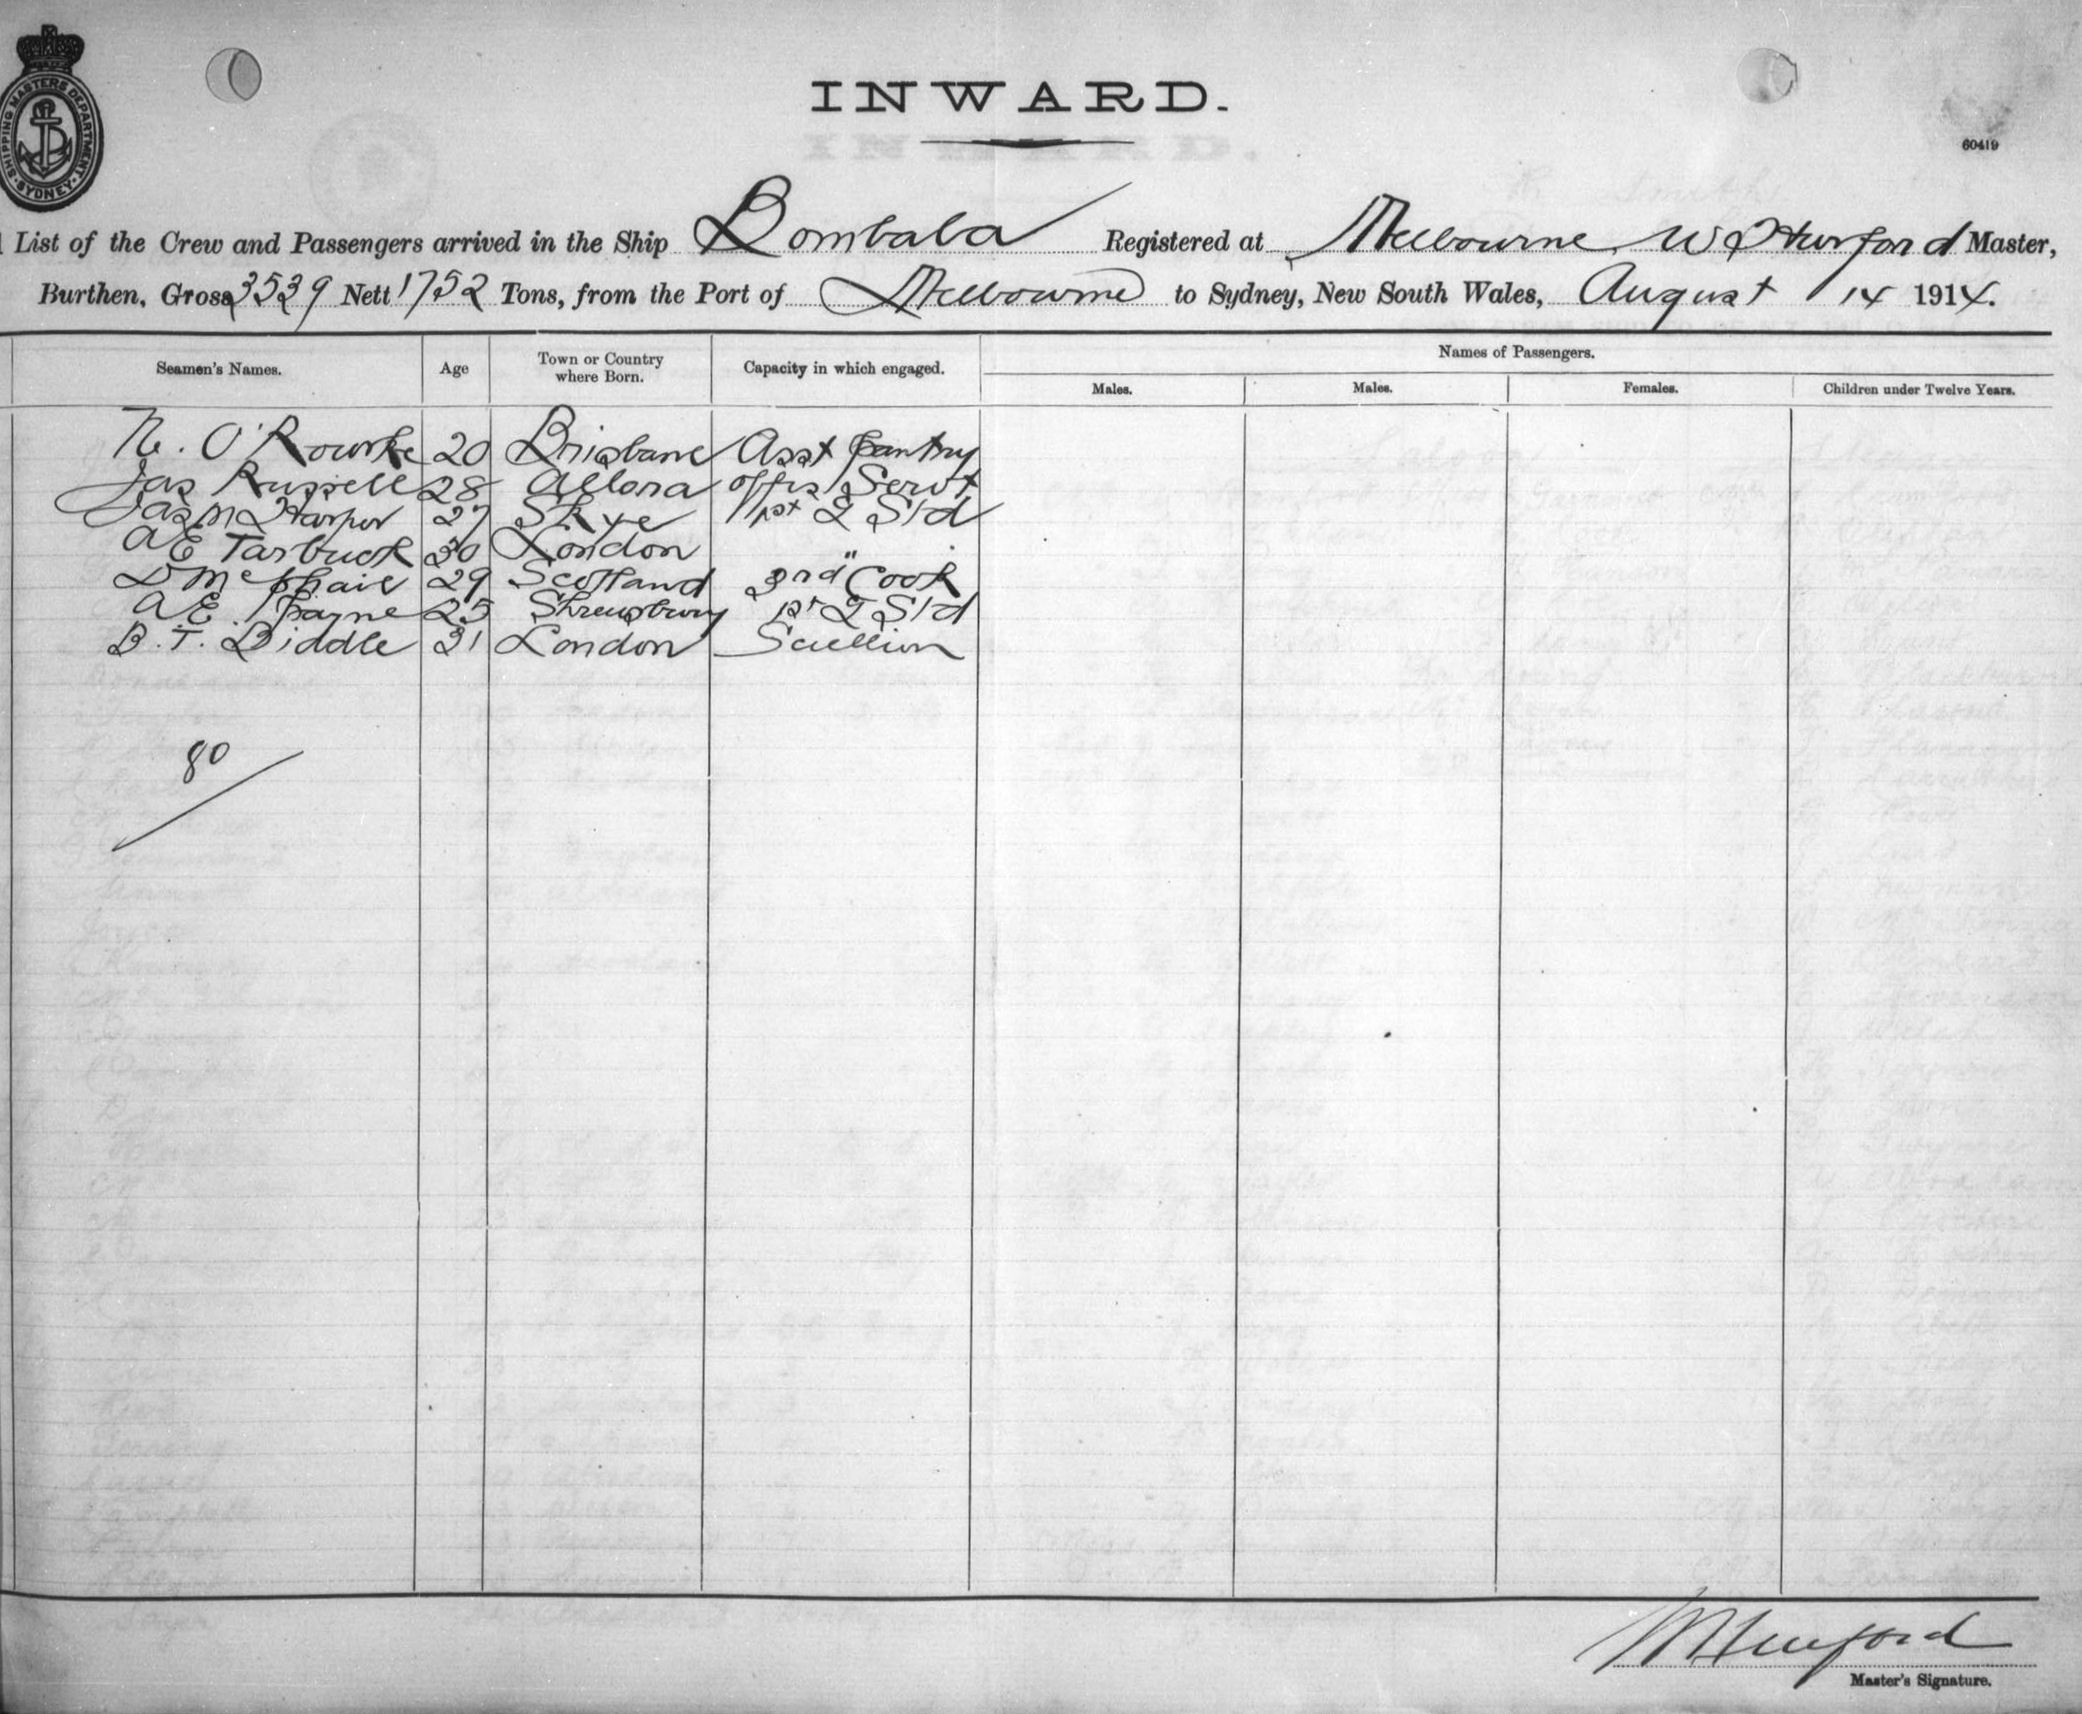 SHIPPING MASTERS DEPARTMENT SYDNEY
INWARD.
60419
List of the Crew and Passengers arrived in the Ship Bombala Registered at Melbourne W Hurford Master,
Burthen, Gross 3539 Nett 1752 Tons, from the Port of Melbourne to Sydney, New South Wales, August 14 1914.
Seamen's Names. Age Town or Country where Born. Capacity in which engaged. Names of Passengers.
Males. Males. Females. Children under Twelve Years.
N. O'Rourke 20 Brisbane Asst Pantry
Jas Russell 28 Allora Offrs Servt
Jas M Harper 27 Skye 1st G Std
A E Tarbuck 30 London "
D McPhail 29 Scotland 3rd Cook
A E Payne 25 Shrewsbury 1st G Std
B. T. Biddle 31 London Scullion
80
W Hurford
Master's Signature.